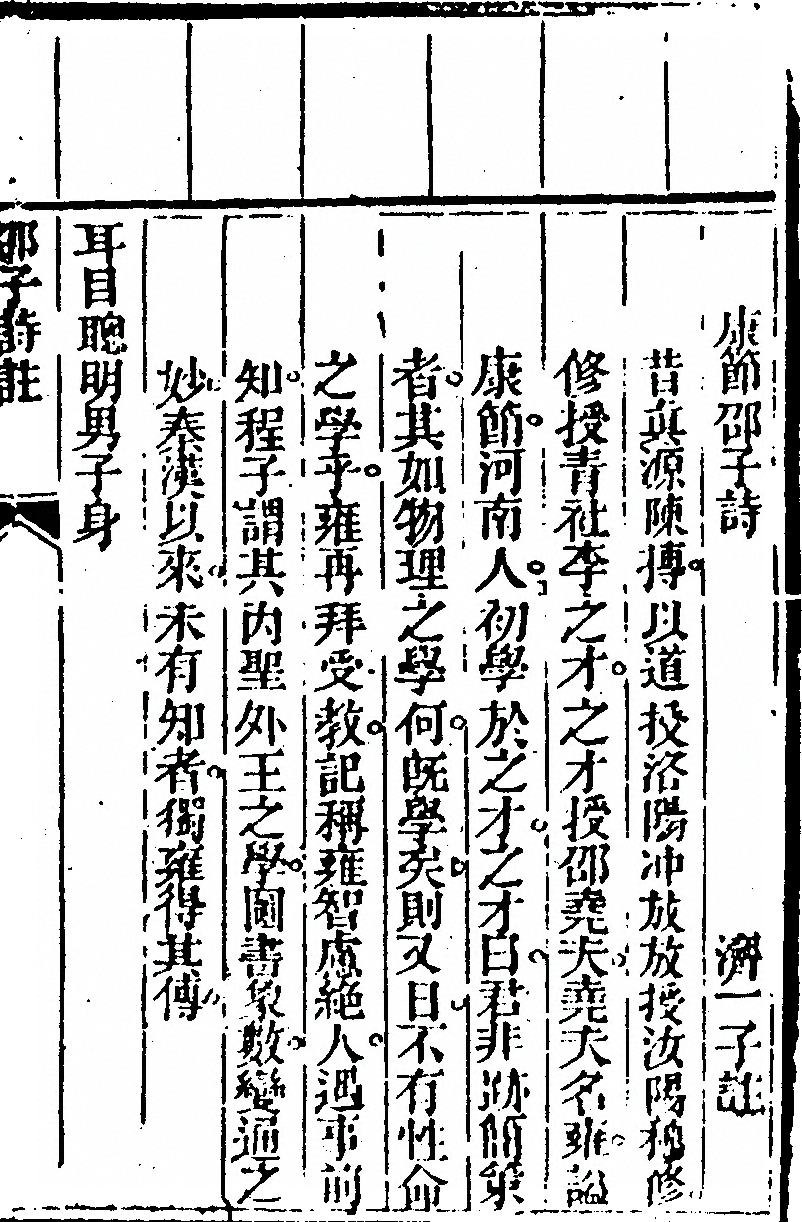 康節邵子詩　濟一子註
昔真源陳摶。以道授洛陽冲放放授汝陽穆修
修授青社李之才。之才授邵堯夫。堯夫名雍。謚
康節。河南人。初學於之才。之才曰。君非跡簡策
者。其如物理之學何。既學矣。則又曰。不有性命
之學乎。雍再拜受教。記稱雍智慮絶人。遇事前
知。程子謂其内聖外王之學。圖書象數。變通之
妙。秦漢以來。未有知者。獨雍得其傳。
耳目聰明男子身
邵子詩註